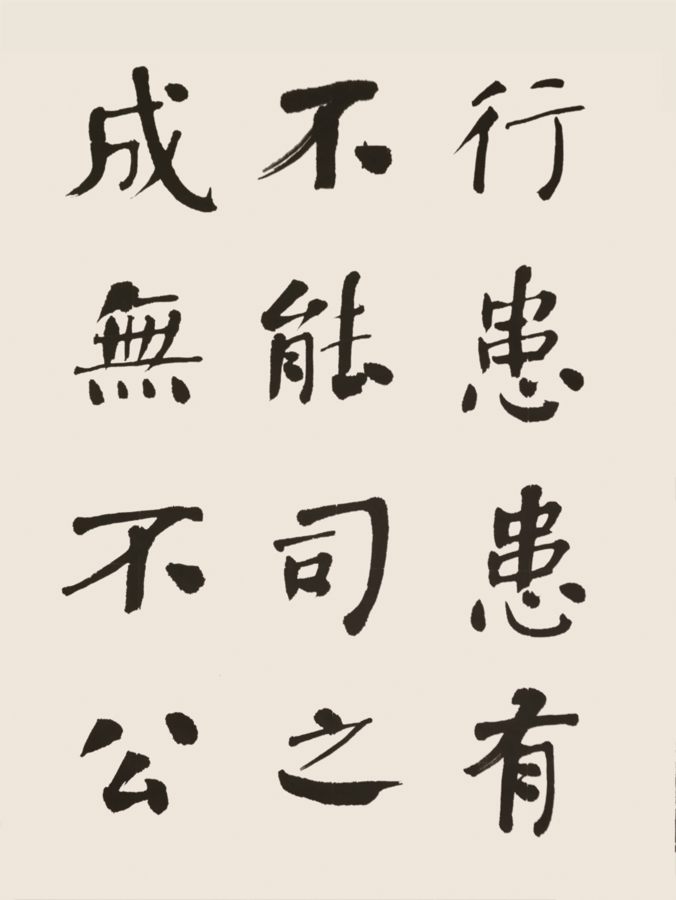 行患患有
不能司之
成無不公